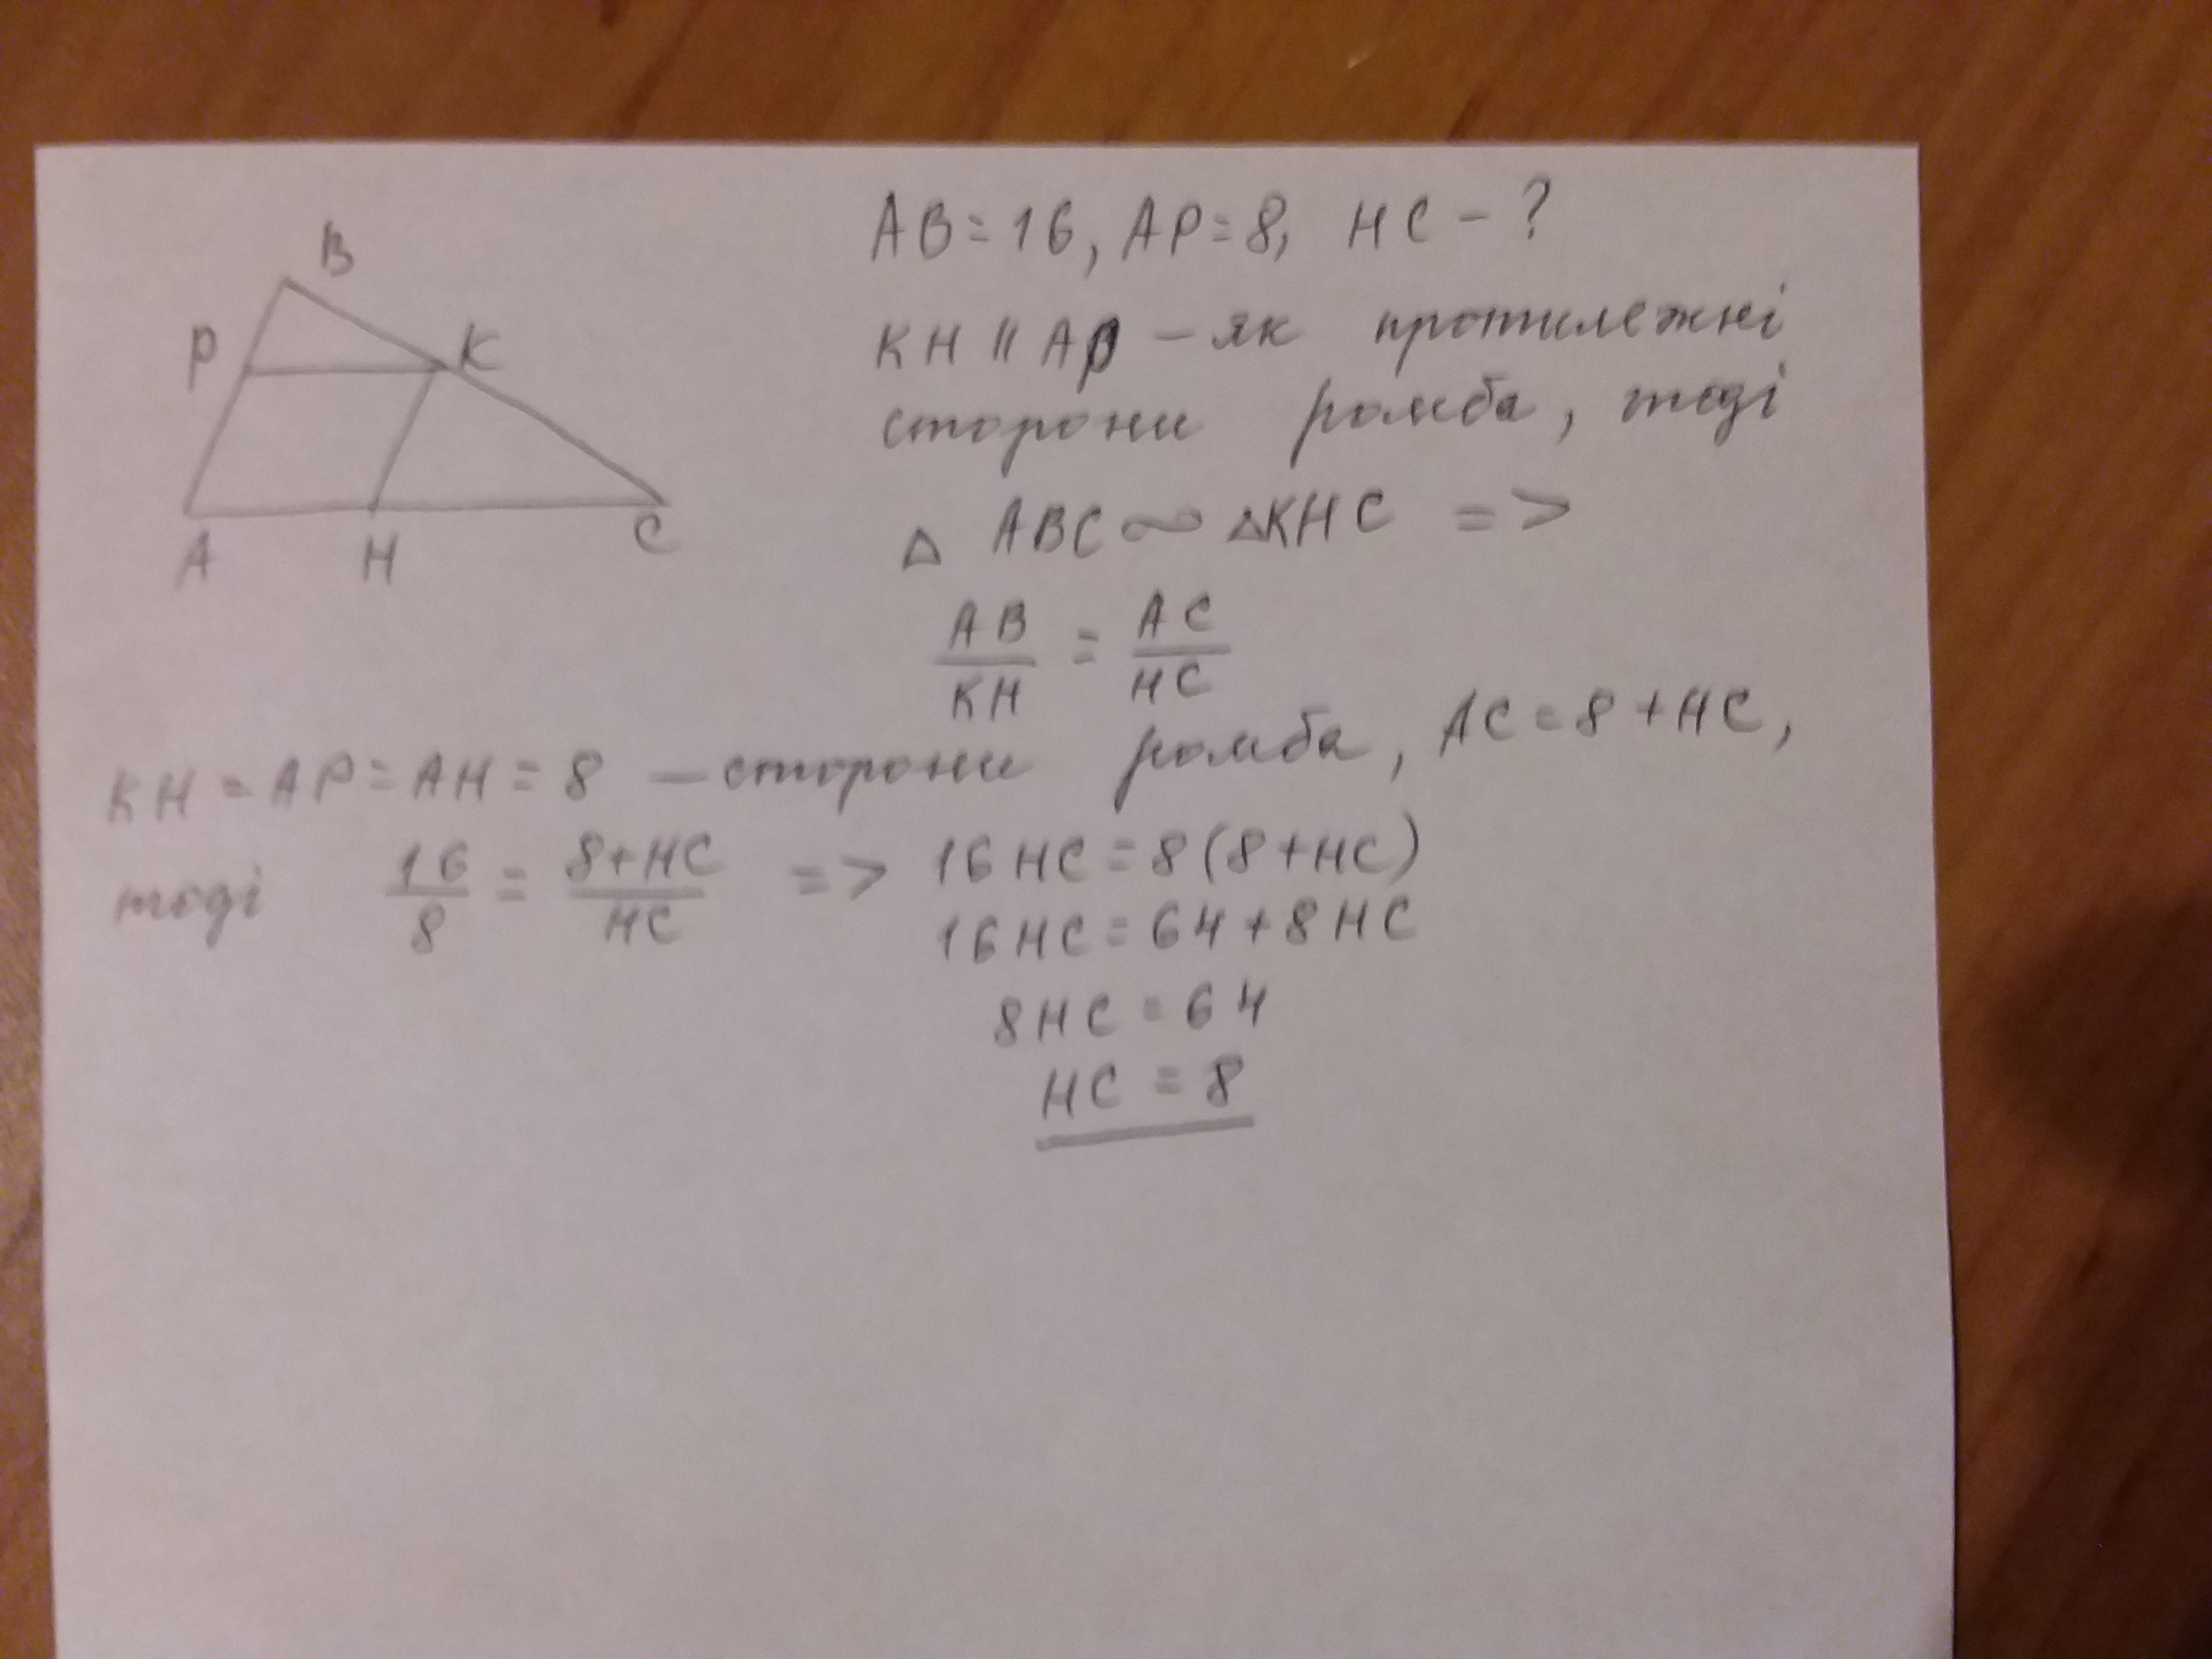 B
P
K
A
H
C
AB = 16, AP = 8, HC - ?
KH || AP - як протилежні
сторони ромба, тоді
△ ABC ∾ △KHC =>
AB/KH = AC/HC
KH = AP = AH = 8 - сторони ромба, AC = 8 + HC,
тоді 16/8 = 8+HC/HC => 16HC = 8(8+HC)
16HC = 64 + 8HC
8HC = 64
HC = 8